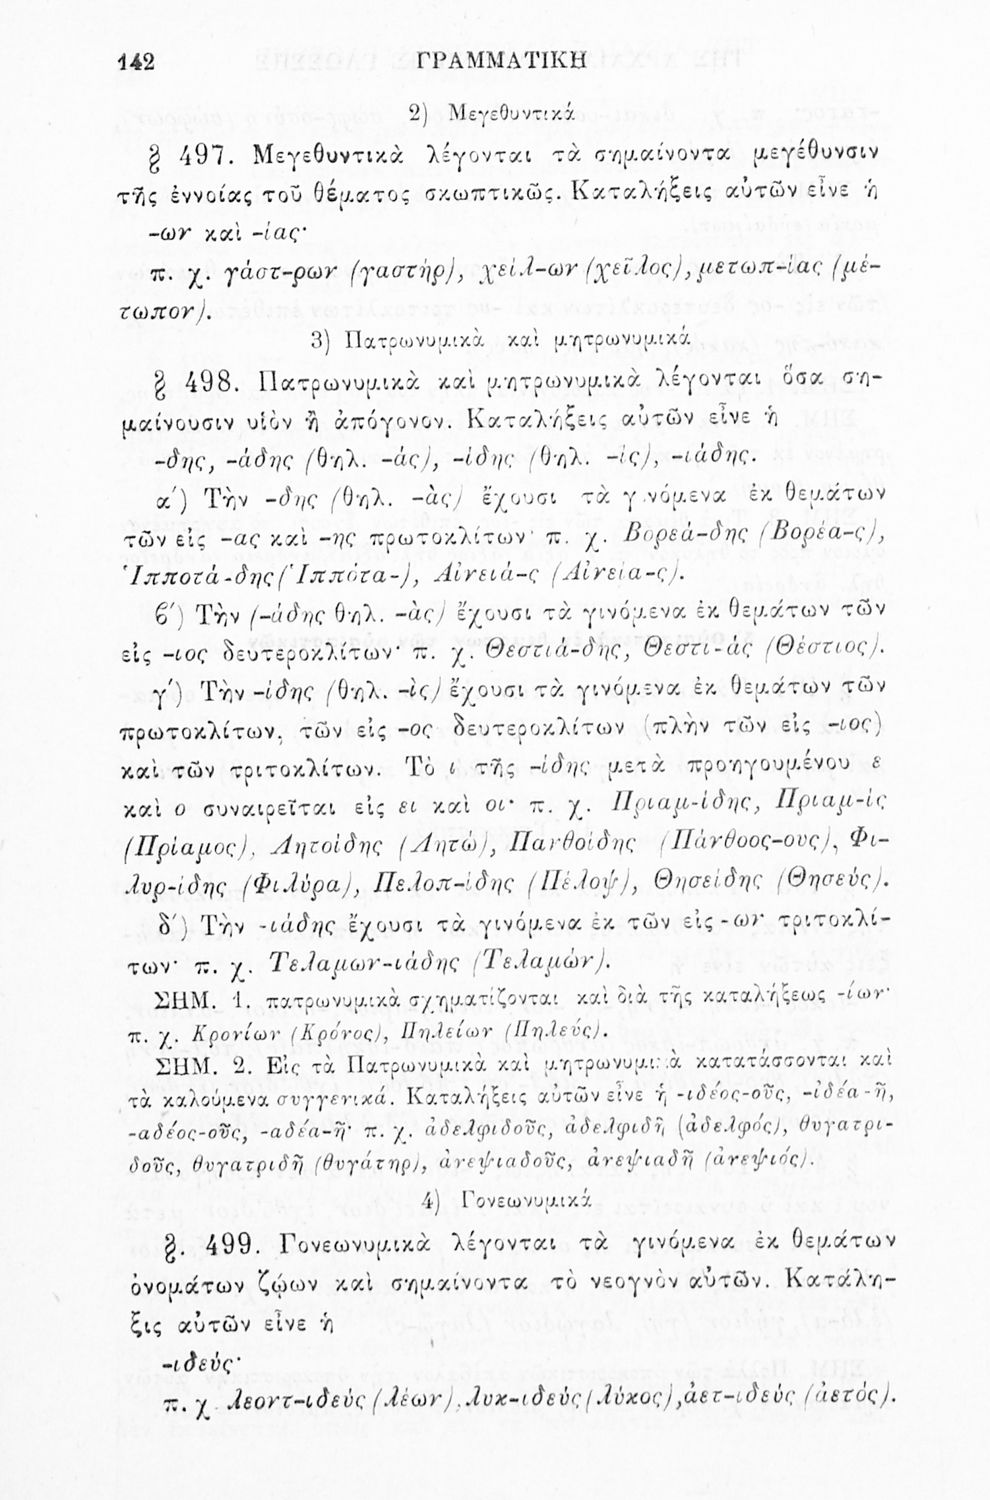 142 ΓΡΑΜΜΑΤΙΚΗ
2) Μεγεθυντικά
§ 497. Μεγεθυντικὰ λέγονται τὰ σημαίνοντα μεγέθυνσιν
τῆς ἐννοίας τοῦ θέματος σκωπτικῶς. Καταλήξεις αὐτῶν εἶνε ἡ
-ων καὶ -ίας·
π. χ. γάστ-ρων (γαστήρ), χείλ-ων (χεῖλος), μετωπ-ίας (μέ-
τωπον).
3) Πατρωνυμικὰ καὶ μητρωνυμικά
§ 498. Πατρωνυμικὰ καὶ μητρωνυμικὰ λέγονται ὅσα ση-
μαίνουσιν υἱὸν ἢ ἀπόγονον. Καταλήξεις αὐτῶν εἶνε ἡ
-δης, -άδης (θηλ. -άς), -ίδης (θηλ. -ίς), -ιάδης.
α′) Τὴν -δης (θηλ. -ὰς) ἔχουσι τὰ γινόμενα ἐκ θεμάτων
τῶν εἰς -ας καὶ -ης πρωτοκλίτων· π. χ. Βορεά-δης (Βορέα-ς),
Ἱπποτά-δης (Ἱππότα-), Αἰνειά-ς (Αἰνεία-ς).
β′) Τὴν (-άδης θηλ. -ὰς) ἔχουσι τὰ γινόμενα ἐκ θεμάτων τῶν
εἰς -ιος δευτεροκλίτων· π. χ. Θεστιά-δης, Θεστι-άς (Θέστιος).
γ′) Τὴν -ίδης (θηλ. -ὶς) ἔχουσι τὰ γινόμενα ἐκ θεμάτων τῶν
πρωτοκλίτων, τῶν εἰς -ος δευτεροκλίτων (πλὴν τῶν εἰς -ιος)
καὶ τῶν τριτοκλίτων. Τὸ ι τῆς -ίδης μετὰ προηγουμένου ε
καὶ ο συναιρεῖται εἰς ει καὶ οι· π. χ. Πριαμ-ίδης, Πριαμ-ὶς
(Πρίαμος), Λητοίδης (Λητώ), Πανθοίδης (Πάνθοος-ους), Φι-
λυρ-ίδης (Φιλύρα), Πελοπ-ίδης (Πέλοψ), Θησείδης (Θησεύς).
δ′) Τὴν -ιάδης ἔχουσι τὰ γινόμενα ἐκ τῶν εἰς -ων τριτοκλί-
των· π. χ. Τελαμων-ιάδης (Τελαμών).
ΣΗΜ. 1. πατρωνυμικὰ σχηματίζονται καὶ διὰ τῆς καταλήξεως -ίων·
π. χ. Κρονίων (Κρόνος), Πηλείων (Πηλεύς).
ΣΗΜ. 2. Εἰς τὰ Πατρωνυμικὰ καὶ μητρωνυμικὰ κατατάσσονται καὶ
τὰ καλούμενα συγγενικά. Καταλήξεις αὐτῶν εἶνε ἡ -ιδέος-οῦς, -ιδέα-ῆ,
-αδέος-οῦς, -αδέα-ῆ· π. χ. ἀδελφιδοῦς, ἀδελφιδῆ (ἀδελφός), θυγατρι-
δοῦς, θυγατριδῆ (θυγάτηρ), ἀνεψιαδοῦς, ἀνεψιαδῆ (ἀνεψιός).
4) Γονεωνυμικά
§. 499. Γονεωνυμικὰ λέγονται τὰ γινόμενα ἐκ θεμάτων
ὀνομάτων ζῴων καὶ σημαίνοντα τὸ νεογνὸν αὐτῶν. Κατάλη-
ξις αὐτῶν εἶνε ἡ
-ιδεύς·
π. χ λεοντ-ιδεύς (λέων), λυκ-ιδεύς (λύκος), ἀετ-ιδεύς (ἀετός).